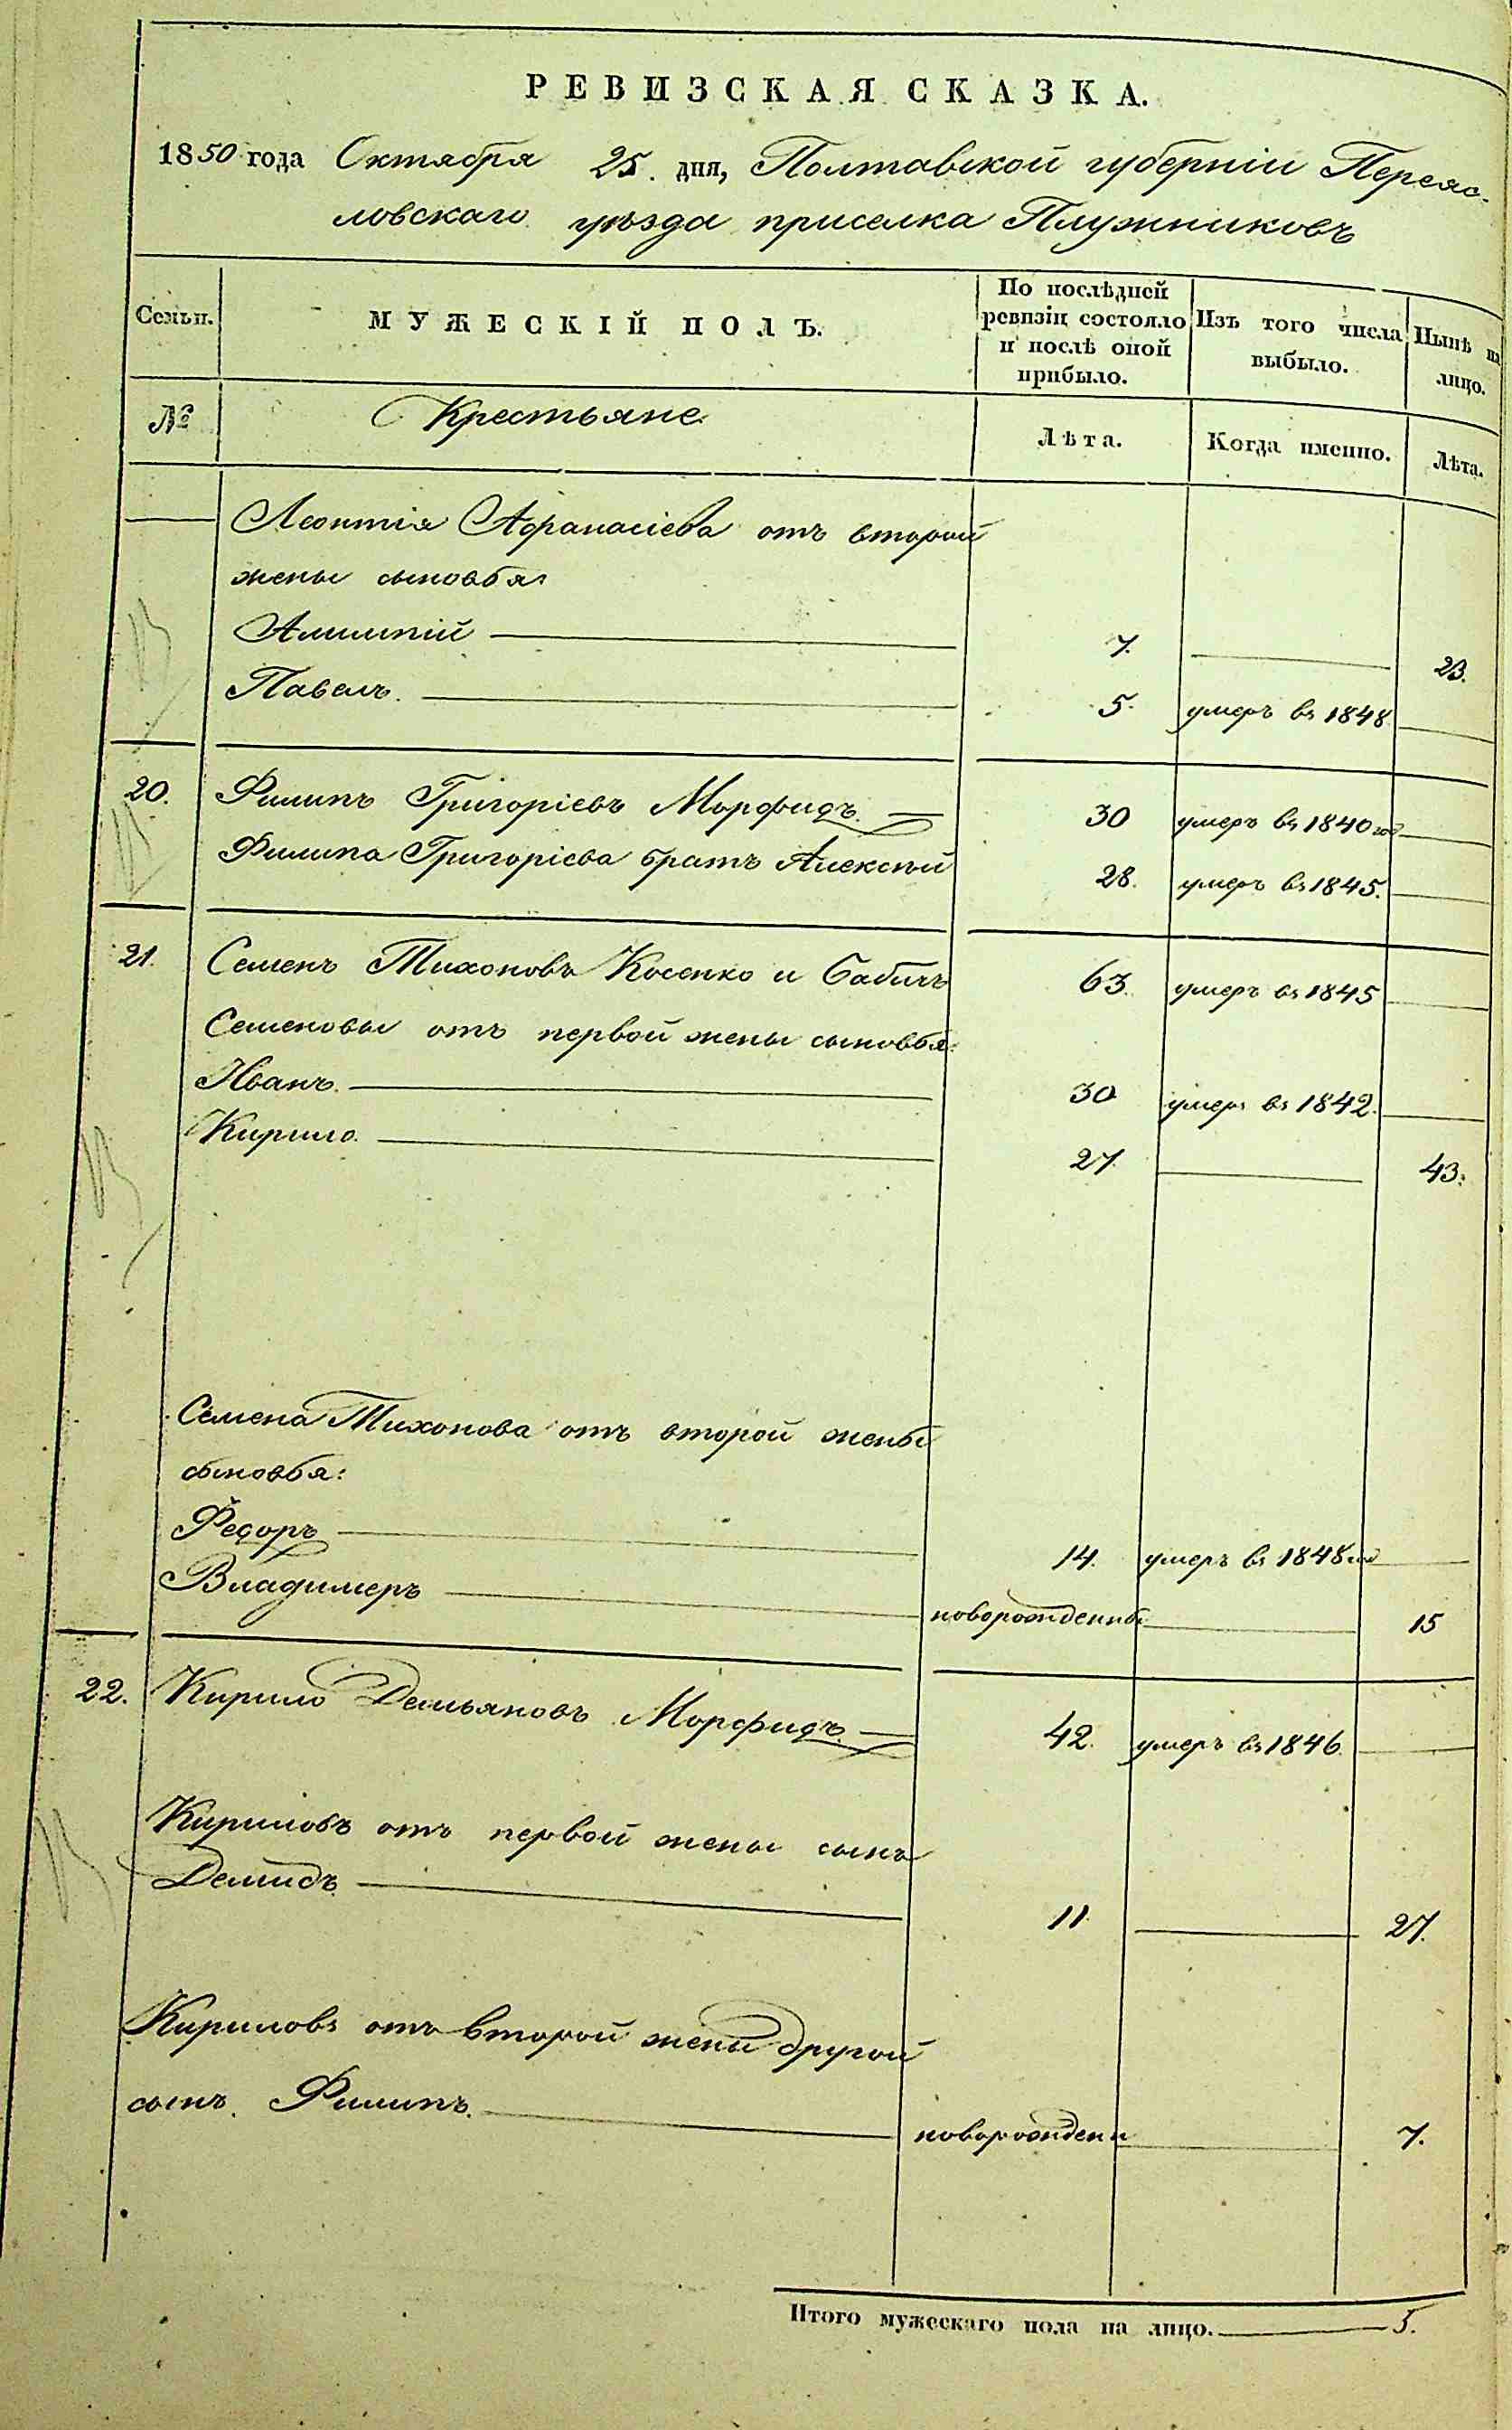 РЕВИЗСКАЯ СКАЗКА.
1850 года Октября 25. дня, Полтавской губерніи Переяс-
ловскаго уѣзда приселка Плужниковъ
Семьи. МУЖЕСКІЙ ПОЛЪ. По послѣдней ревизіи состояло и послѣ оной прибыло. Изъ того числа выбыло. Нынѣ на лицо.
№ Крестьяне Лѣта. Когда именно. Лѣта.
Леонтія Афанасіева отъ второй
жены сыновья:
Алимпій 7. 23.
Павелъ. 5. умеръ въ 1848
20. Филипъ Григоріевъ Морфидъ. 30 умеръ въ 1840 год
Филипа Григоріева братъ Алексѣй 28. умеръ въ 1845.
21. Семенъ Тихоновъ Косенко и Бабичъ 63. умеръ въ 1845
Семеновы отъ первой жены сыновья:
Иванъ. 30 умеръ въ 1842.
Кирило. 27 43.
Семена Тихонова отъ второй жены
сыновья:
Федоръ 14. умеръ въ 1848 год
Владимеръ новорожденны 15
22. Кирило Демьяновъ Морфидъ. 42. умеръ въ 1846.
Кириловъ отъ первой жены сынъ
Демидъ 11 27.
Кириловъ отъ второй жени другой
сынъ. Филипъ. новорожденн 7.
Итого мужескаго пола на лицо. 5.